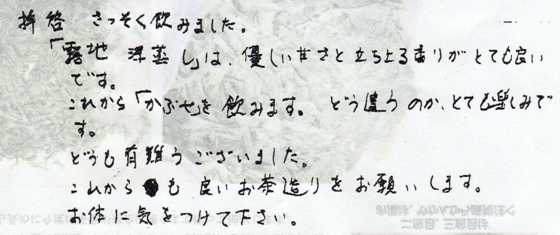 拝啓 さっそく飲みました。
「露地 深蒸し」は、優しい甘さと立ち上る香りがとても良い
です。
これから「かぶせ」を飲みます。どう違うのか、とても楽しみで
す。
どうも有難うございました。
これからも良いお茶造りをお願いします。
お体に気をつけて下さい。